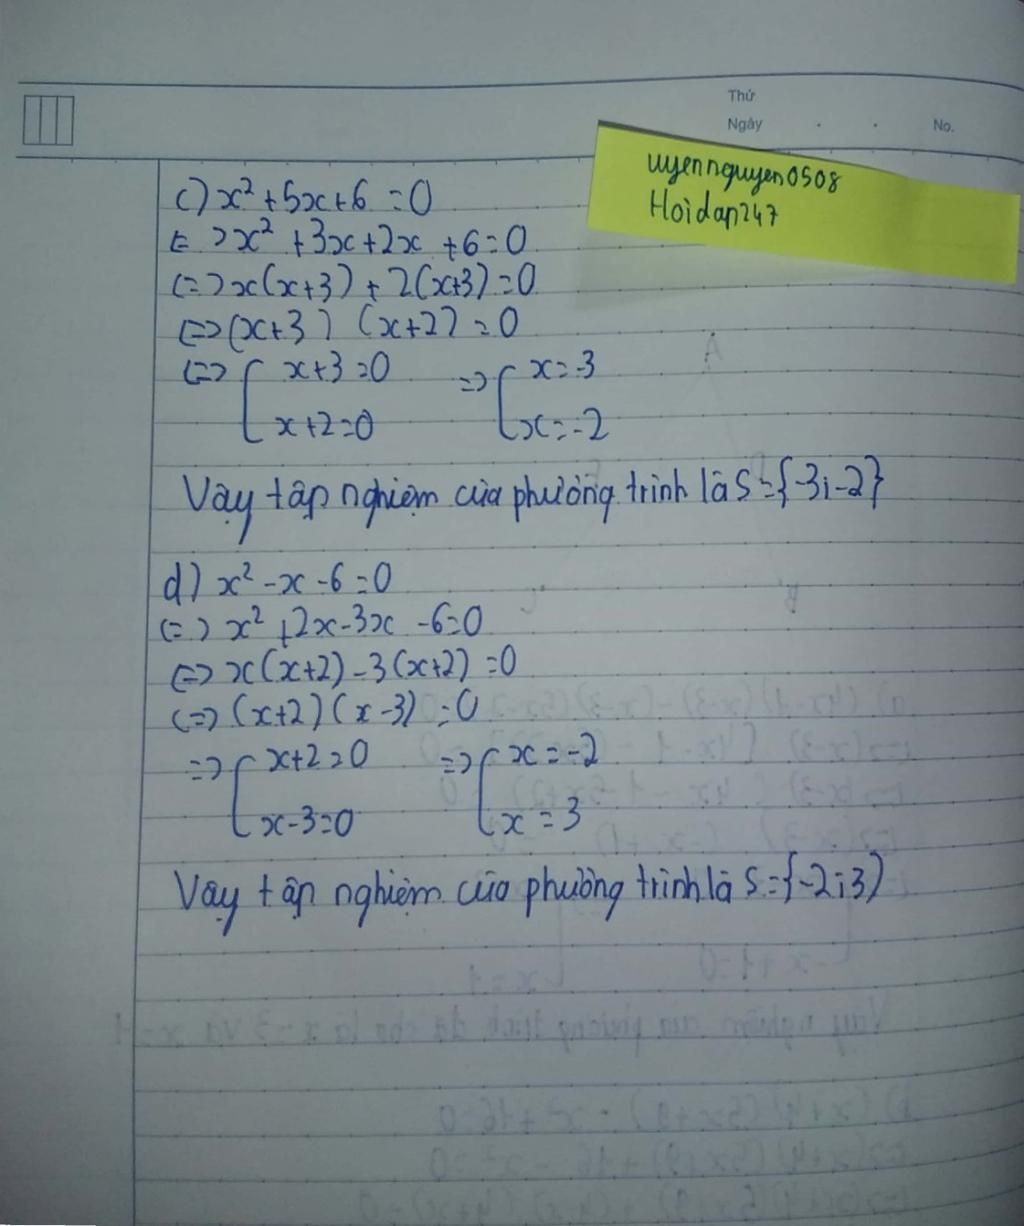 Thứ
Ngày . . No.
uyennguyen0508
Hoidap247
c) x² + 5x + 6 = 0
(=) x² + 3x + 2x + 6 = 0
(=) x(x+3) + 2(x+3) = 0
(=) (x+3) (x+2) = 0
(=) [ x+3 = 0 => [ x = -3
x+2 = 0 x = -2
Vậy tập nghiệm của phương trình là S = {-3; -2}
d) x² - x - 6 = 0
(=) x² + 2x - 3x - 6 = 0
(=) x(x+2) - 3(x+2) = 0
(=) (x+2) (x-3) = 0
=> [ x+2 = 0 => [ x = -2
x-3 = 0 x = 3
Vậy tập nghiệm của phương trình là S = {-2; 3}